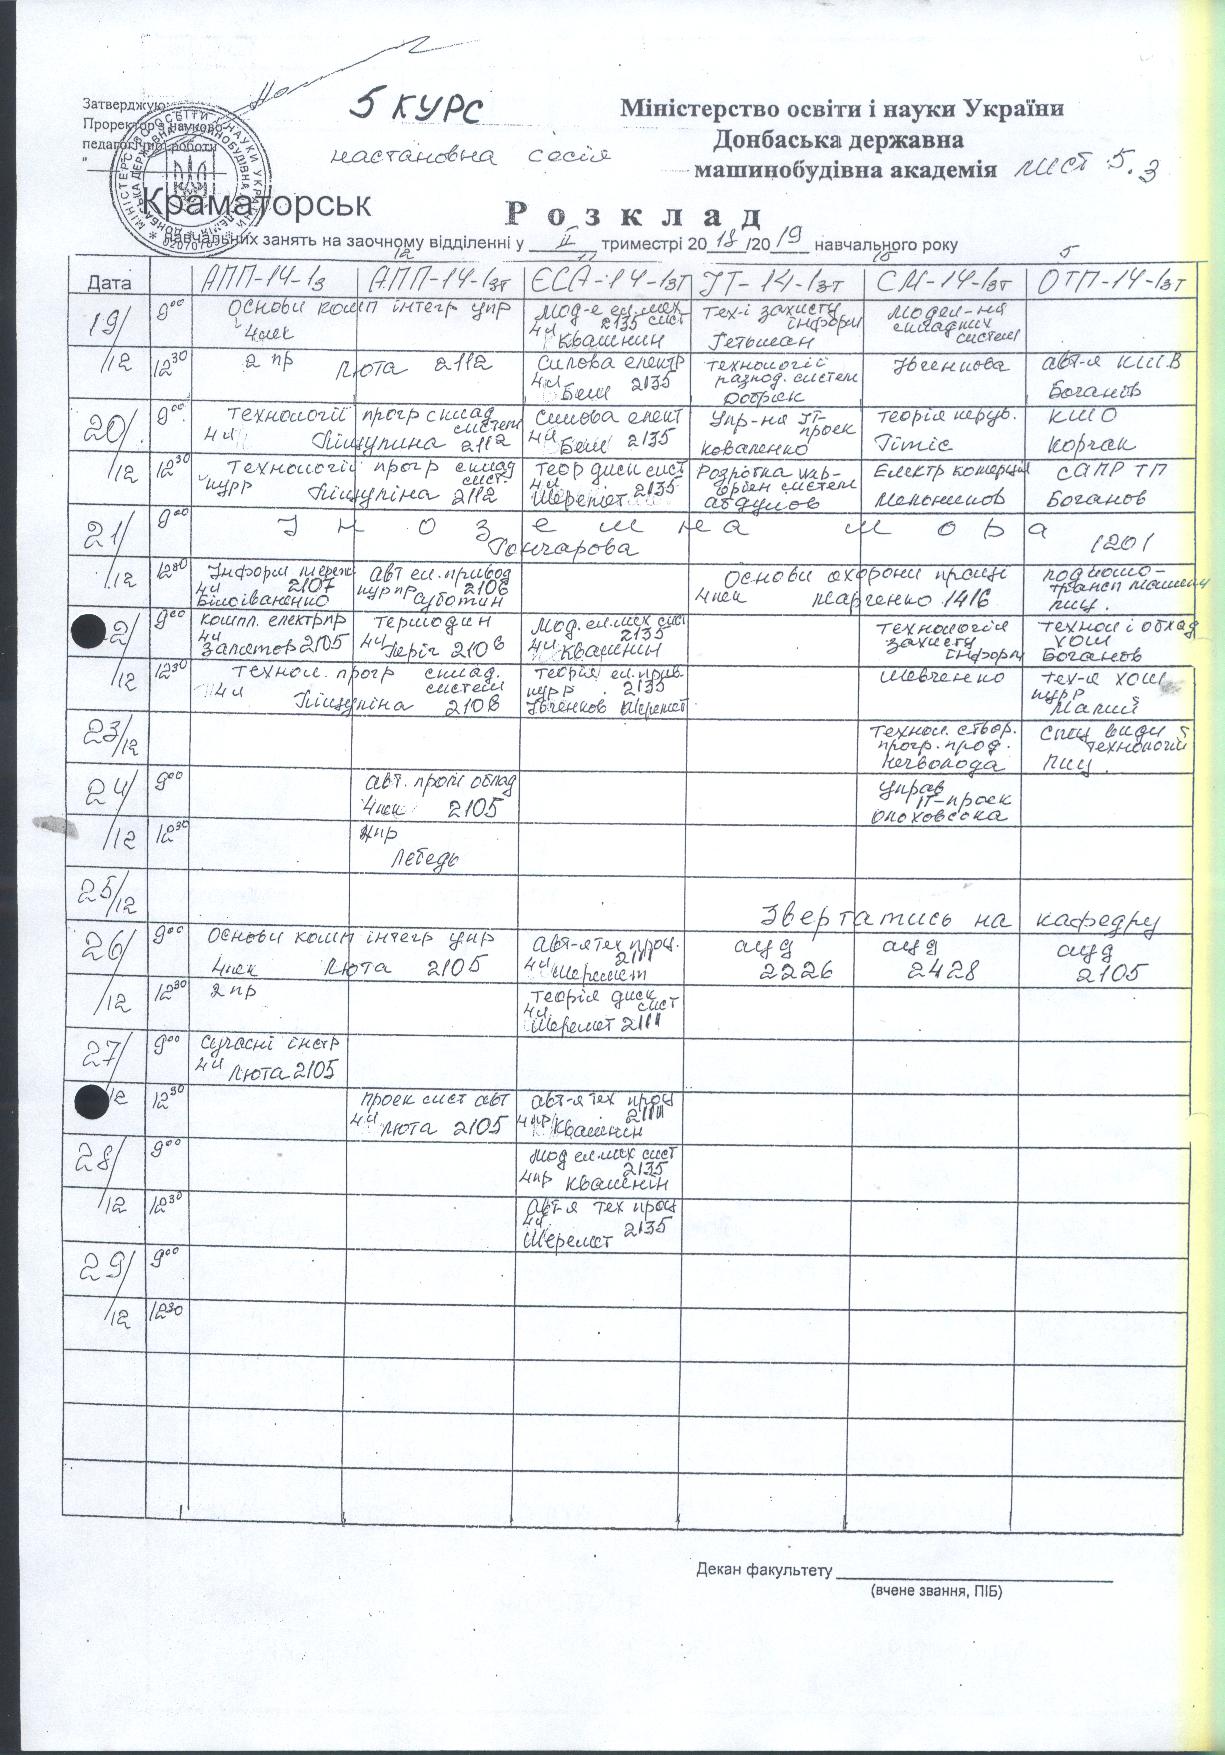 Затверджую
Проректор з науково-
педагогічної роботи
"
5 КУРС
настановна сесія
Міністерство освіти і науки України
Донбаська державна
машинобудівна академія
лист 5.3
Краматорськ
Розклад
навчальних занять на заочному відділенні у II триместрі 2018/2019 навчального року
12 5
Дата АПП-14-1з АПП-14-1зт ЕСА-14-1зт ІТ-14-1зт СМ-14-1зт ОТП-14-1зт
19/12 9⁰⁰ Основи комп інтегр упр
4лек
Мод-е ел.мех
2135 сист
4л Квашнин
Тех-і захисту
інформ
Гетьман
Модел-ня
складних
систем
12³⁰ 2 пр Люта 2112
Силова електр
4л Беш 2135
технології
разпод. систем
авт-я КШВ
Боганов
20/12 9⁰⁰ технології прогр склад
систем
4л 2112
Силова елект
4л Беш 2135
Упр-ня ІТ-
проек
Коваленко
теорія керув.
Гітіс
КШО
Корчак
12³⁰ технології прогр склад
сист.
2112
теор диск сист
4л
Шеремет 2135
систем
Електр комерція
Мельников
САПР ТП
Боганов
21/12 9⁰⁰ Іноземна мова
Гончарова 1201
12³⁰ Інформ мереж
4л 2107
Білоіваненко
авт ел.привод
2106
Суботин
Основи охорони праці
4лек Марченко 1416
22/12 9⁰⁰ компл. електрпр
4л
2105
термодин
4л Періг 2106
Мод.ел.мех сист
2135
4л Квашнин
технологія
захисту
інформ
технол і облад
ХОШ
Боганов
12³⁰ технол. прогр склад.
4л систем
2106
теорія ел.прив.
2135
Шеремет
Шевченко
тех-я ХОШ
23/12
технол. створ.
прогр. прод.
спец види
технологій
24/12 9⁰⁰ авт. пром облад
4лек 2105
управ
ІТ-проек
12³⁰
Лебедь
25/12
Звертатись на кафедру
26/12 9⁰⁰ Основи комп інтегр упр
4лек Люта 2105
авт-я тех проц.
2111
4л Шеремет
ауд
2226
ауд
2428
ауд
2105
12³⁰ 2 пр
теорія диск
4л сист
Шеремет 2111
27/12 9⁰⁰ сучасні інстр
4л Люта 2105
12³⁰ проек сист авт
4л Люта 2105
авт-я тех проц
2111
4пр Квашнін
28/12 9⁰⁰ Мод ел.мех сист
2135
4пр Квашнін
12³⁰ авт-я тех проц
4л
Шеремет 2135
29/12 9⁰⁰
12³⁰
Декан факультету
(вчене звання, ПІБ)